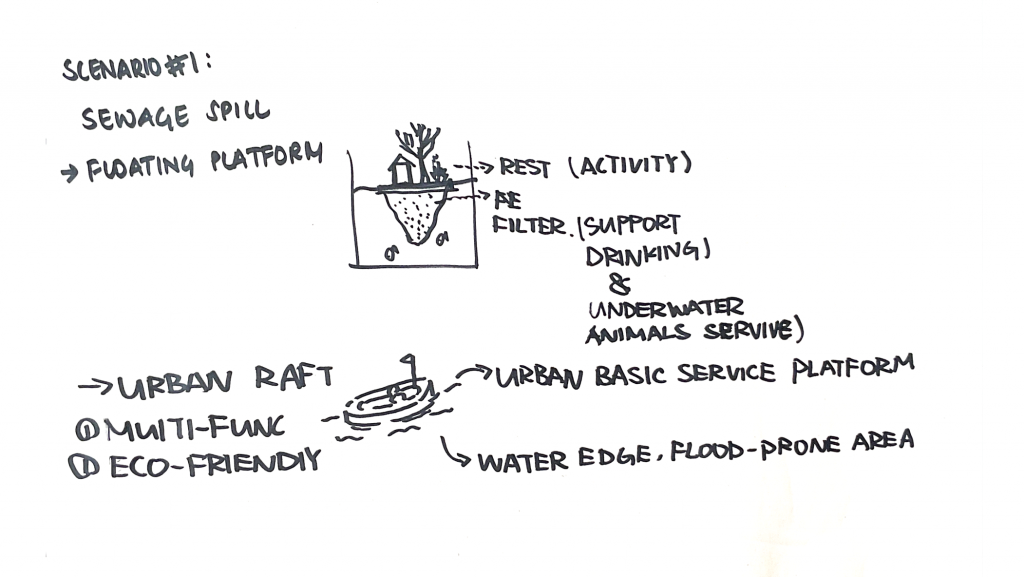 SCENARIO #1:
SEWAGE SPILL
→ FLOATING PLATFORM
→ REST (ACTIVITY)
→ PE
FILTER. (SUPPORT
DRINKING)
&
UNDERWATER
ANIMALS SERVIVE)
→ URBAN RAFT
① MULTI-FUNC
① ECO-FRIENDLY
→ URBAN BASIC SERVICE PLATFORM
↳ WATER EDGE, FLOOD-PRONE AREA